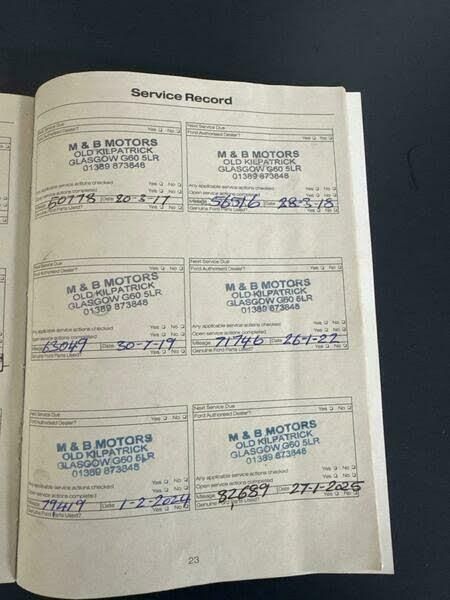 Service Record
Next Service Due
Ford Authorised Dealer? Yes No
M & B MOTORS
OLD KILPATRICK
GLASGOW G60 5LR
01389 873848
Any applicable service actions checked Yes No
Open service actions completed Yes No
Mileage 50778 Date 20-3-17
Genuine Ford Parts Used? Yes No
Next Service Due
Ford Authorised Dealer? Yes No
M & B MOTORS
OLD KILPATRICK
GLASGOW G60 5LR
01389 873848
Any applicable service actions checked Yes No
Open service actions completed Yes No
Mileage 56516 Date 28-3-18
Genuine Ford Parts Used? Yes No
Next Service Due
Ford Authorised Dealer? Yes No
M & B MOTORS
OLD KILPATRICK
GLASGOW G60 5LR
01389 873848
Any applicable service actions checked Yes No
Open service actions completed Yes No
Mileage 63049 Date 30-7-19
Genuine Ford Parts Used? Yes No
Next Service Due
Ford Authorised Dealer? Yes No
M & B MOTORS
OLD KILPATRICK
GLASGOW G60 5LR
01389 873848
Any applicable service actions checked Yes No
Open service actions completed Yes No
Mileage 71746 Date 26-1-22
Genuine Ford Parts Used? Yes No
Next Service Due
Ford Authorised Dealer? Yes No
M & B MOTORS
OLD KILPATRICK
GLASGOW G60 5LR
01389 873848
Any applicable service actions checked Yes No
Open service actions completed Yes No
Mileage 79419 Date 1-2-2024
Genuine Ford Parts Used? Yes No
Next Service Due
Ford Authorised Dealer? Yes No
M & B MOTORS
OLD KILPATRICK
GLASGOW G60 5LR
01389 873848
Any applicable service actions checked Yes No
Open service actions completed Yes No
Mileage 82689 Date 27-1-2025
Genuine Ford Parts Used? Yes No
23